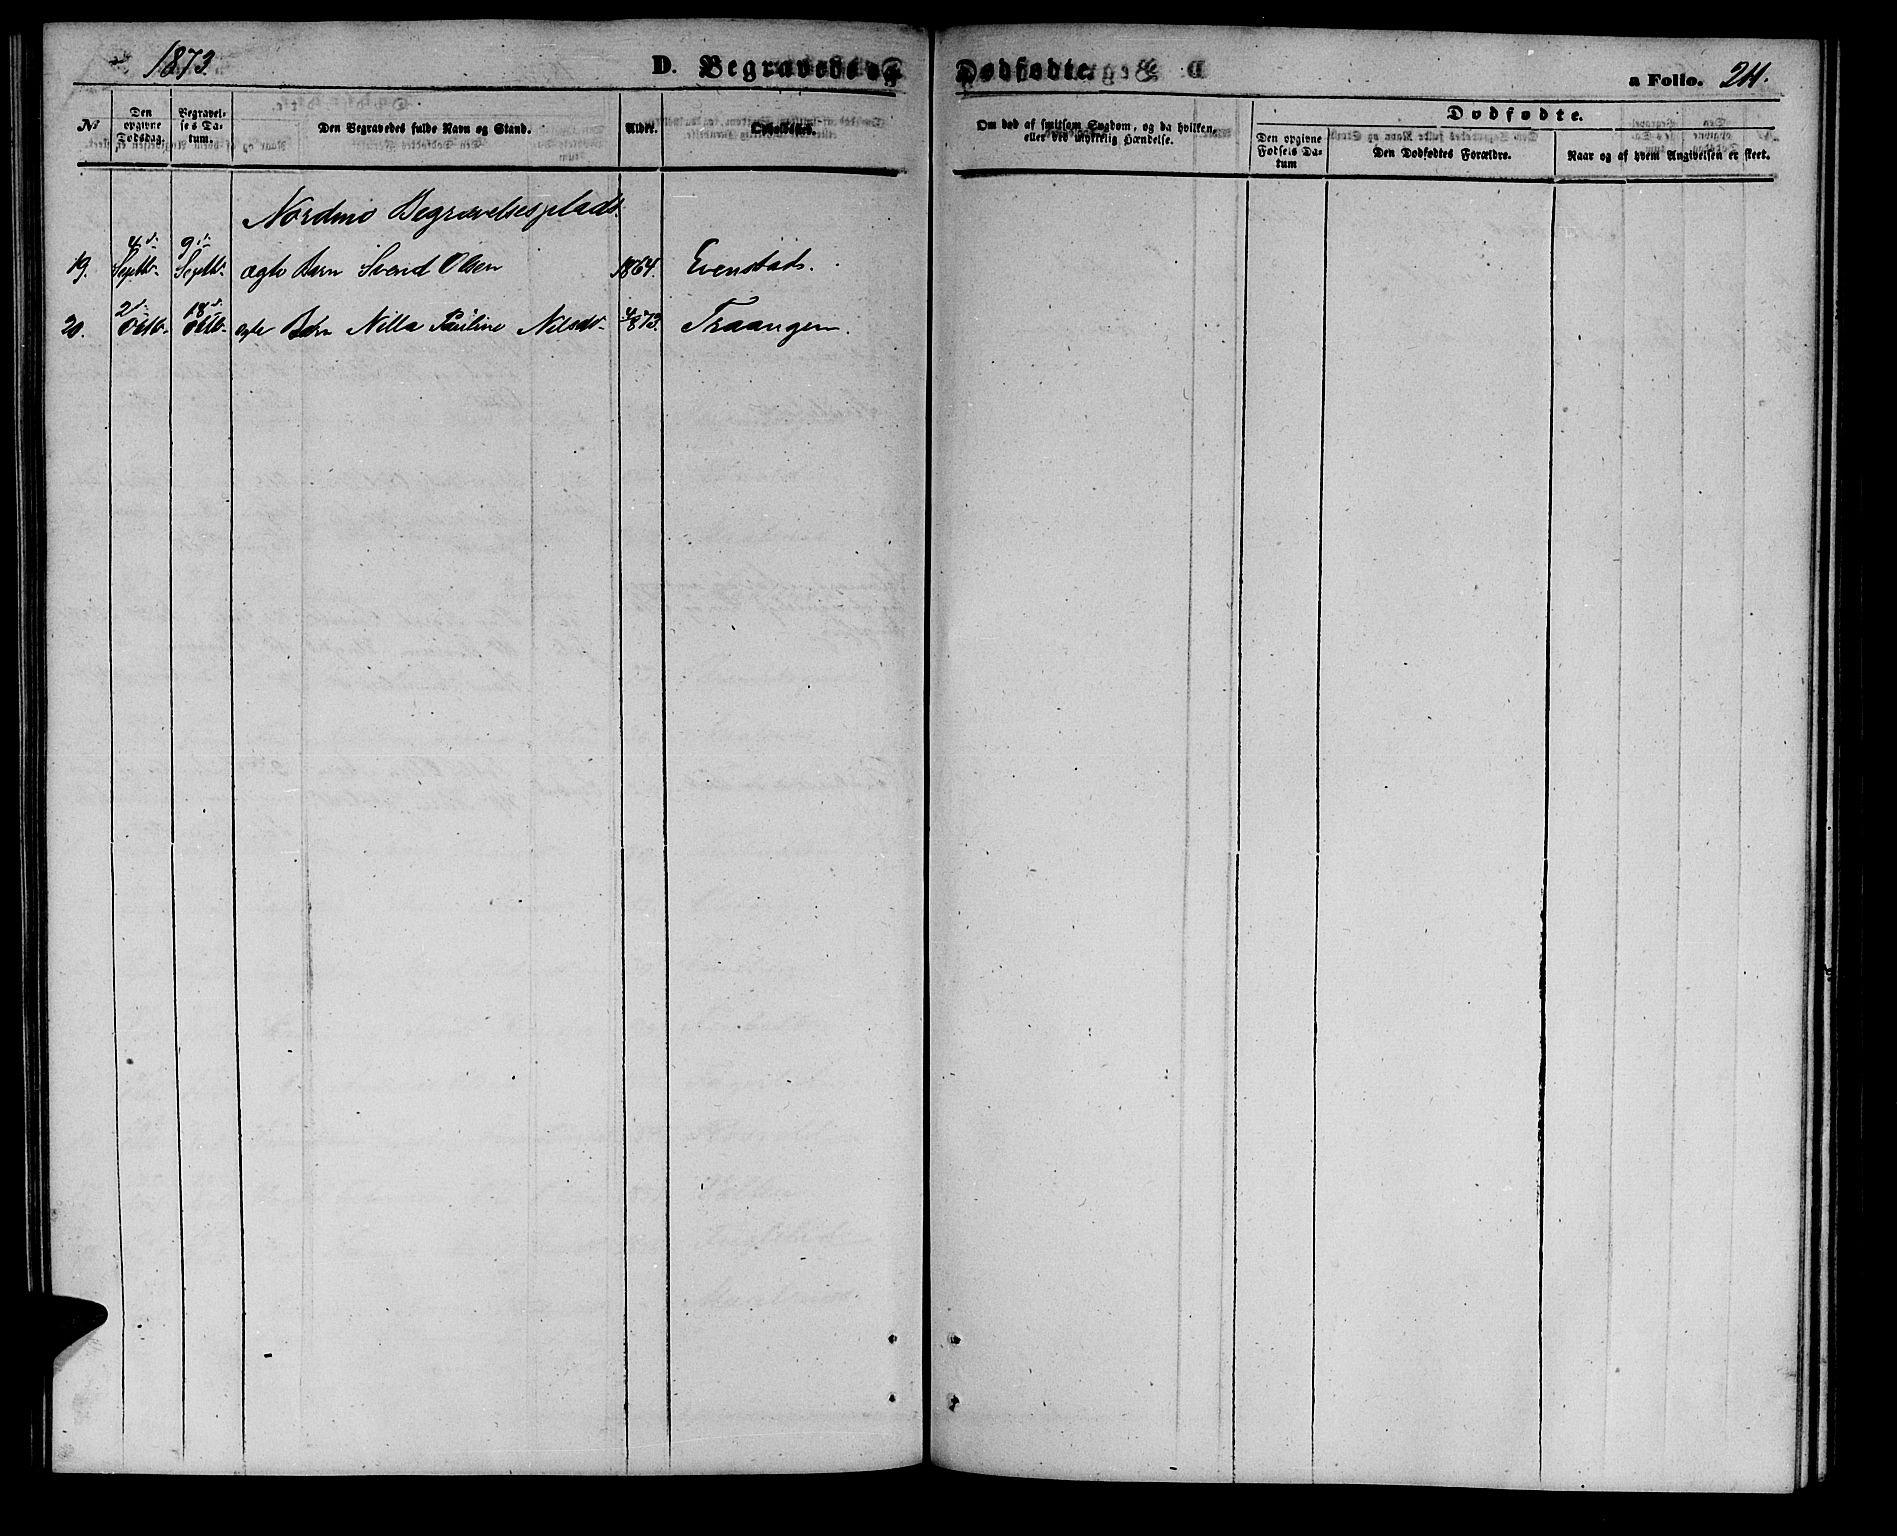 1873.
D. Begravede og Dødfødte.
a Folio. 211.
№
Den opgivne Dødsdag.
Begravelses Datum.
Den Begravedes fulde Navn og Stand.
Alder.
Opholdssted.
Om død af smitsom Sygdom, og da hvilken, eller ved ulykkelig Hændelse.
Dødfødte.
Den opgivne Fødsels Datum
Den Dødfødtes Forældre.
Naar og af hvem Angivelsen er skeet.
Nordmo Begravelsesplads.
19. 4de Septbr. 9de Septbr. ægte Barn Svend Olsen 1864. Evenstad.
20. 2de Octbr. 18de Octbr. ægte Barn Nilla Pauline Nilsdr. 1873. Traangen.